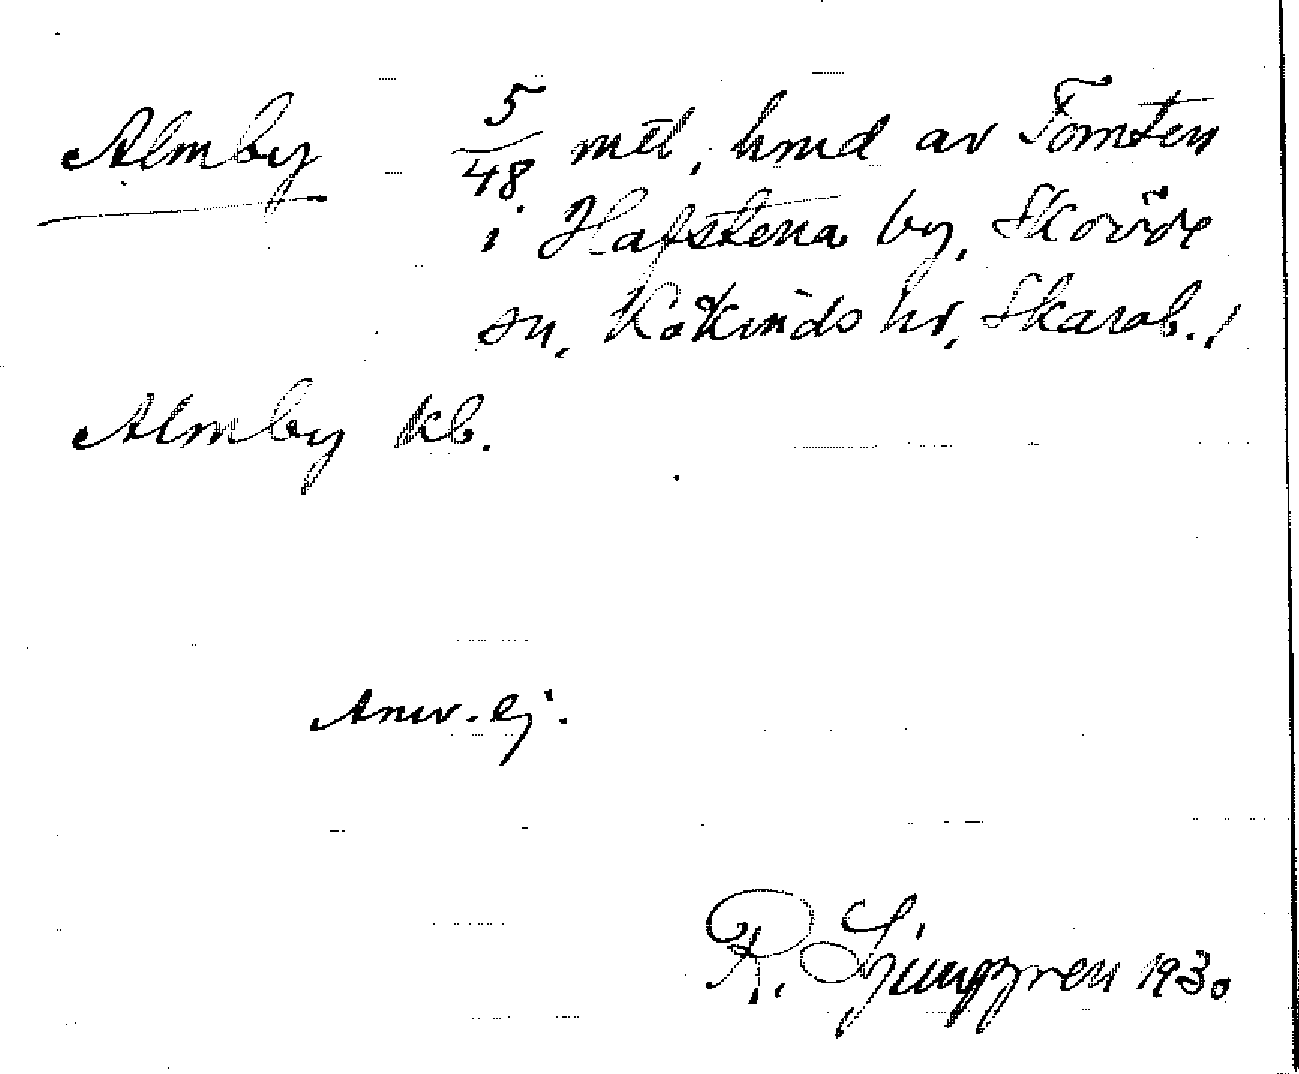 Almby 5/48 mtl, hmd av Tomten
i Hafstena by, Skövde
sn, Kåkinds hd, Skarab. l
Almby kb.
Anv. ej.
R. Ljunggren 1930